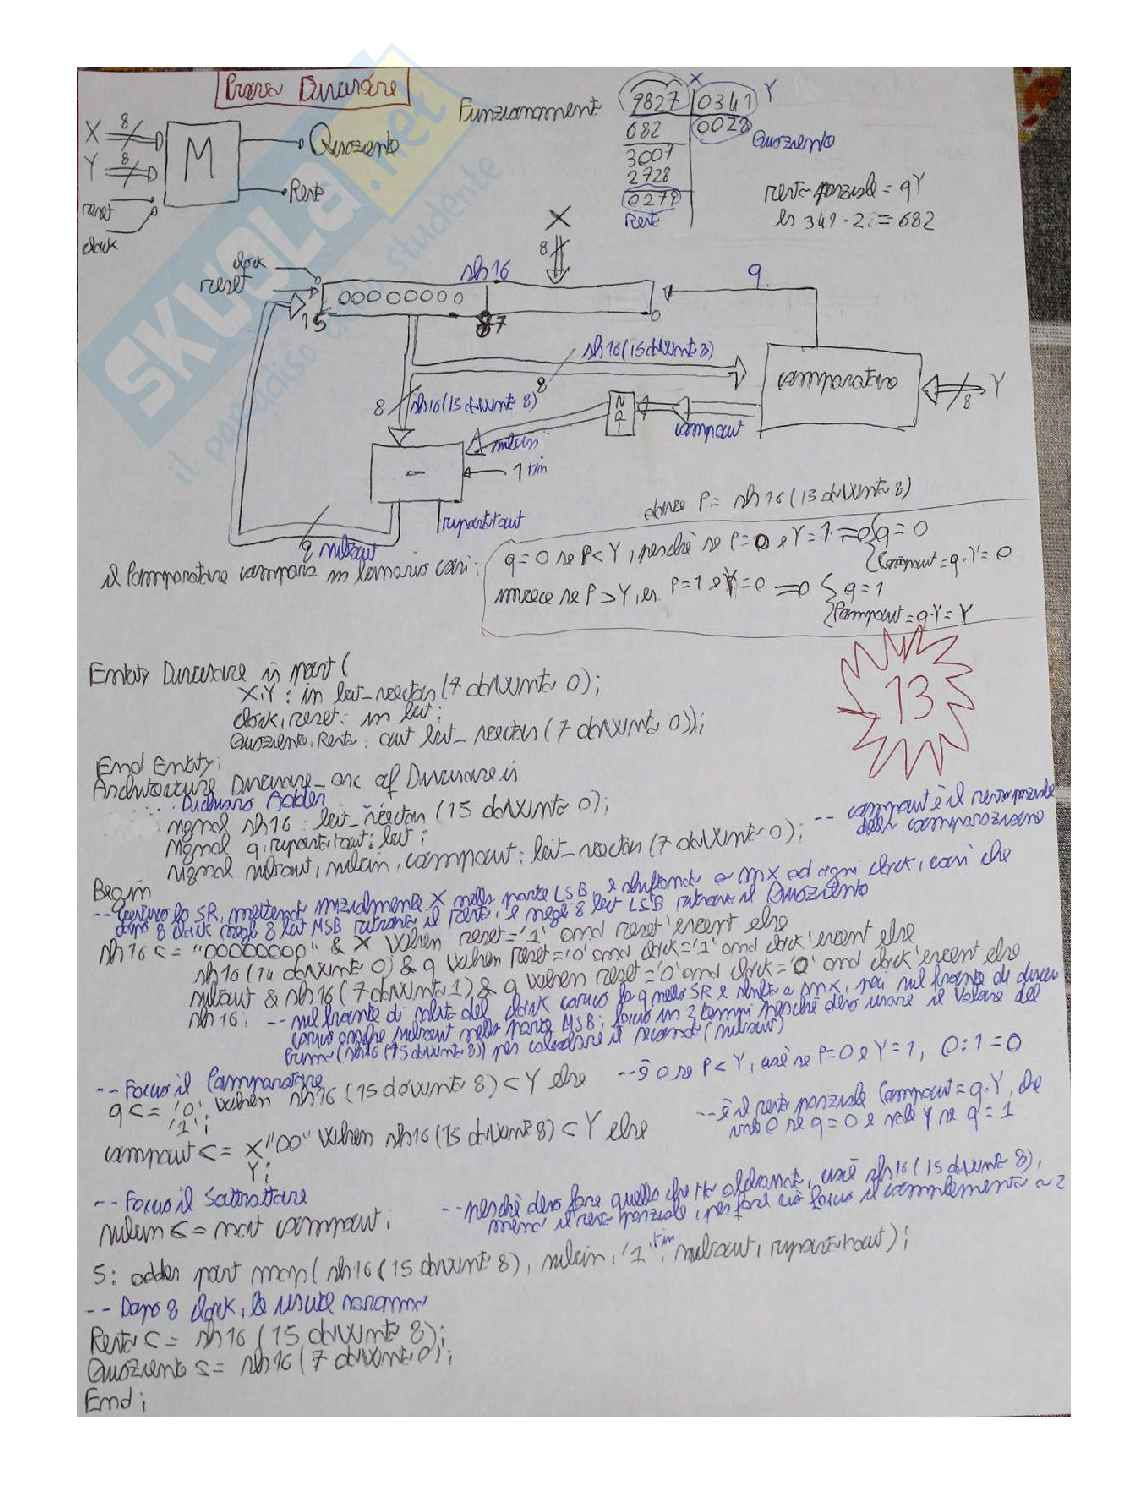 Prova Divisore
X 8
Y 8
M
Quoziente
Resto
reset
clock
Funzionamento:
X
9827 0341 Y
682 0028 Quoziente
3007
2728
0279
Resto
resto parziale = qY
es 341 · 2 = 682
SKUOLA.net
il paradiso dello studente
X
8
clock
reset
sh16
00000000
15
7
q
sh16(15 downto 8)
8
comparatore
8
Y
8
sh16(15 downto 8)
NOT
compout
subin
-
1 rin
riportout
8 subout
dove P = sh16(15 downto 8)
il Comparatore compara in binario così:
q=0 se P<Y, perchè se P=0 e Y=1 => q=0
Compout=q·Y=0
invece se P>Y, es. P=1 e Y=0 => q=1
Compout=q·Y=Y
13
Entity Divisore is port (
X,Y: in bit_vector(7 downto 0);
clock, reset: in bit;
Quoziente, Resto: out bit_vector(7 downto 0));
End Entity;
Architecture Divisore_arc of Divisore is
... Dichiaro Adder
signal sh16: bit_vector (15 downto 0);
signal q, riportout: bit;
signal subout, subin, compout: bit_vector(7 downto 0); -- compout è il resto parziale
della comparazione
Begin
-- Gestisco lo SR, mettendo inizialmente X nella parte LSB, e shiftando a sx ad ogni clock, così che
dopo 8 clock negli 8 bit MSB ritrovo il resto, e negli 8 bit LSB ritrovo il Quoziente
sh16 <= "00000000" & X when reset='1' and reset'event else
sh16(14 downto 0) & q when reset='0' and clock='1' and clock'event else
subout & sh16(7 downto 1) & q when reset='0' and clock='0' and clock'event else
sh16; -- sul fronte di salita del clock carico q nello SR e shifto a sx, poi sul fronte di discesa
carico anche subout nella parte MSB; faccio in 2 tempi perchè devo usare il valore del
primo (sh16(15 downto 8)) per calcolare il secondo (subout)
-- Faccio il Comparatore
q <= '0' when sh16(15 downto 8) < Y else -- è 0 se P<Y, cioè se P=0 e Y=1, 0:1=0
'1';
compout <= X"00" when sh16(15 downto 8) < Y else -- è il resto parziale Compout=q·Y, che
Y; vale 0 se q=0 e vale Y se q=1
-- Faccio il Sottrattore -- perchè devo fare quello che sto abbassando, cioè sh16(15 downto 8),
subin <= not compout; meno il resto parziale, per fare ciò faccio il complemento a 2
S: adder port map( sh16(15 downto 8), subin, '1', subout, riportout);
rin
-- Dopo 8 clock, le uscite saranno
Resto <= sh16 (15 downto 8);
Quoziente <= sh16 (7 downto 0);
End;